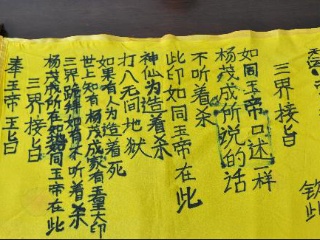 钦此
三界接旨
如同玉帝口述一样
杨茂成所说的话
不听着杀
此印如同玉帝在此
神仙为造着杀
打八无间地狱
如果有人为造着死
世上知有杨茂成家有玉皇大印
三界跪拜如有不听着杀
杨茂成所在如同玉帝在此
三界接旨
奉玉帝玉旨